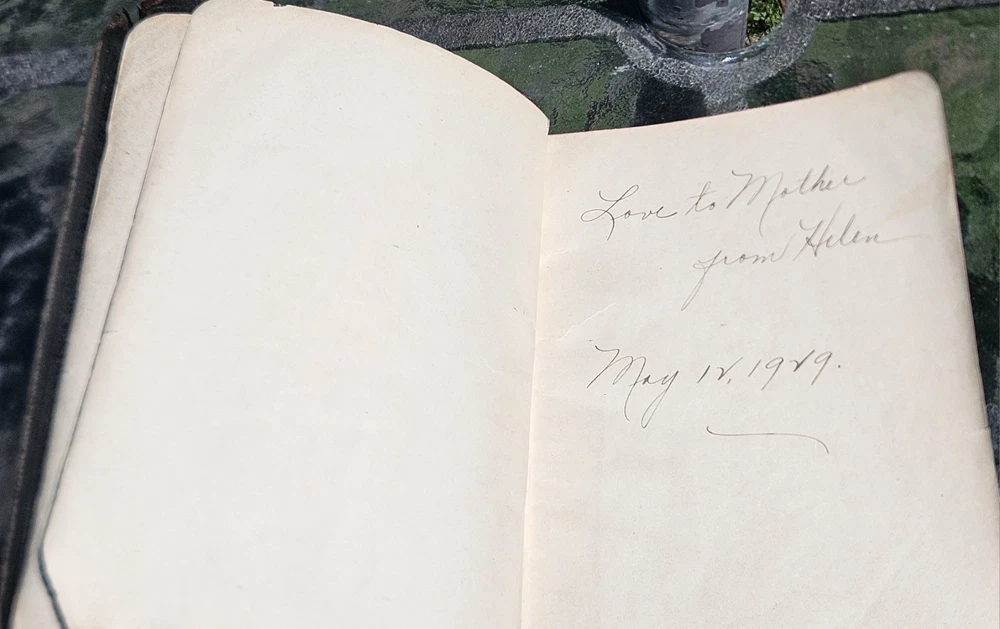 Love to Mother
from Helen
May 12, 1929.